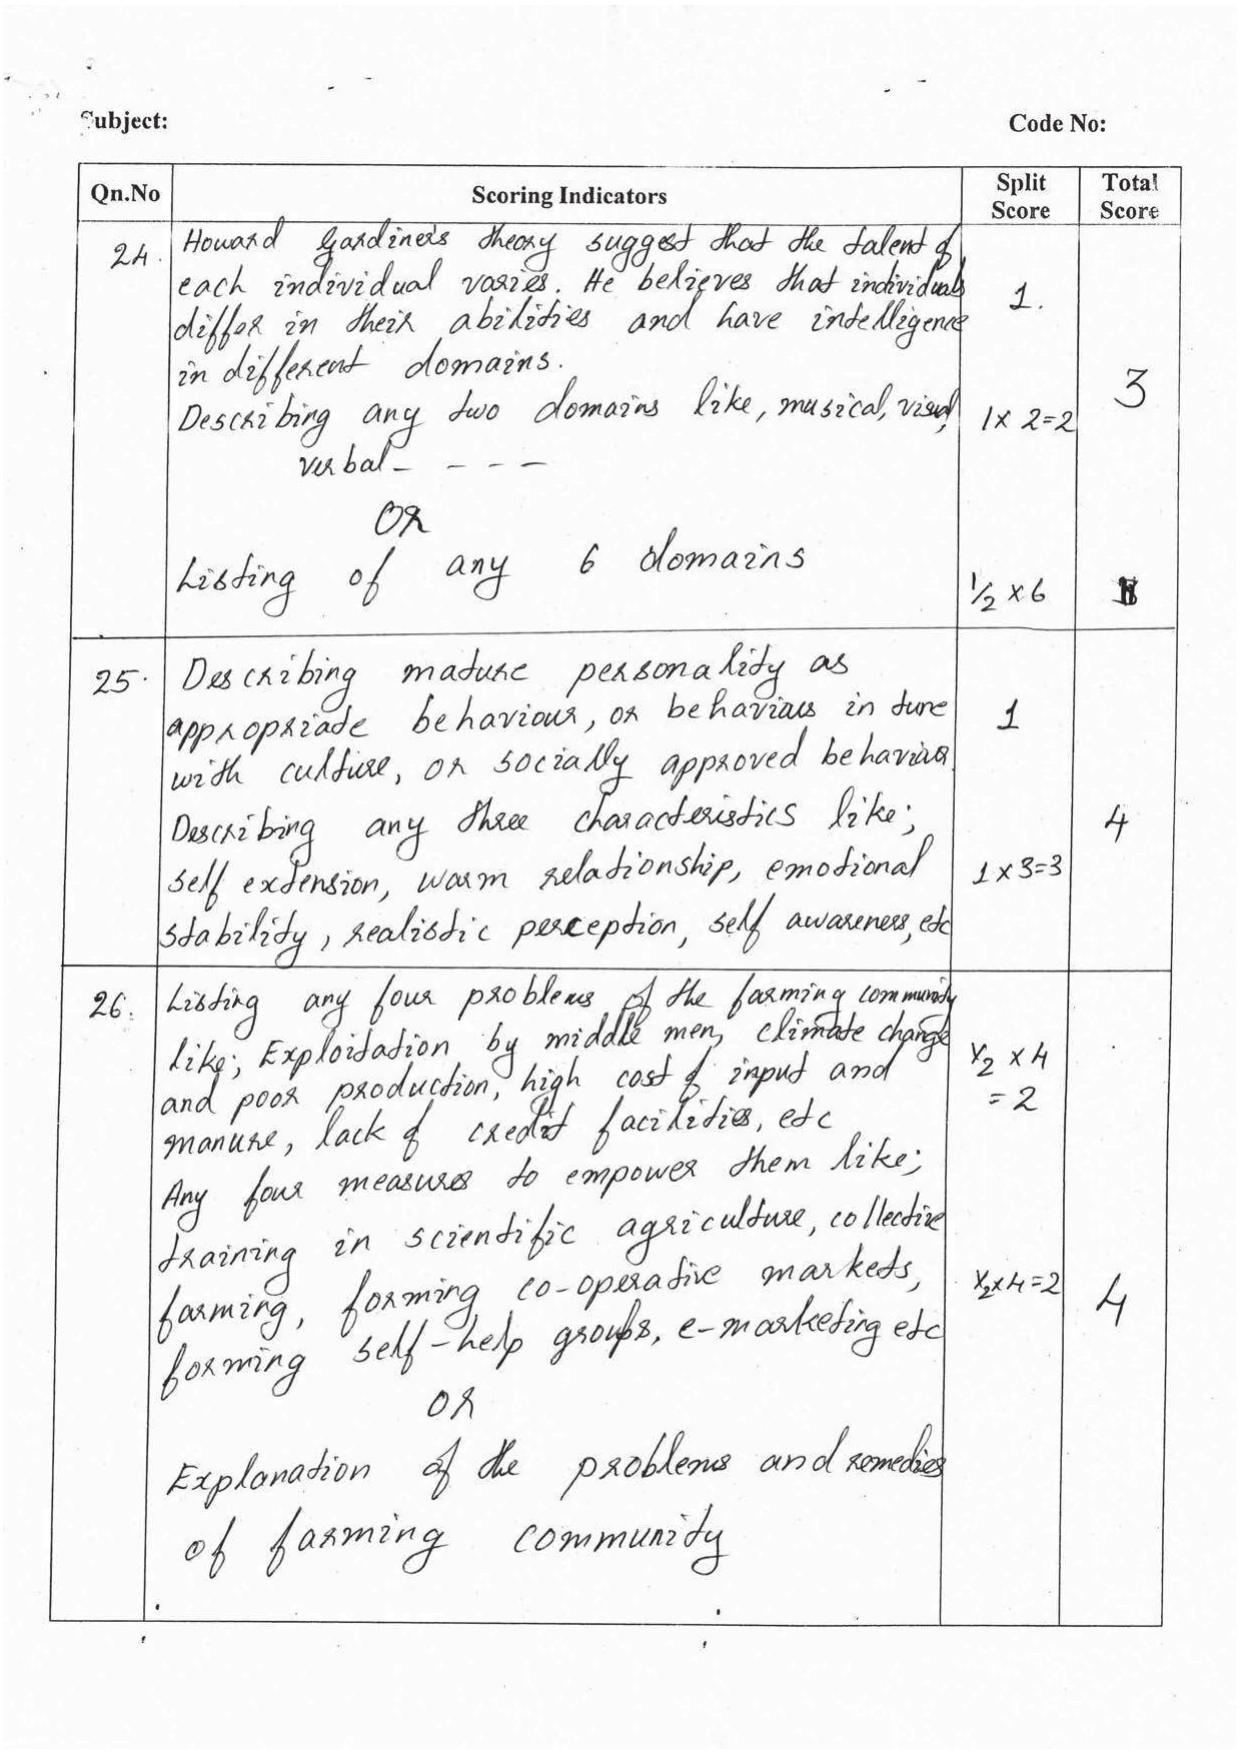 Subject:
Code No:
Qn.No Scoring Indicators Split Score Total Score
24. Howard Gardiner's theory suggest that the talent of
each individual varies. He believes that individuals
differ in their abilities and have intelligence
in different domains.
1.
Describing any two domains like, musical, visual,
verbal - - - -
1 x 2=2
3
OR
Listing of any 6 domains
1/2 x 6
25. Describing mature personality as
appropriate behaviour, or behaviour in tune
with culture, or socially approved behaviour
1
Describing any three characteristics like;
self extension, warm relationship, emotional
stability, realistic perception, self awareness, etc
1 x 3=3
4
26. Listing any four problems of the farming community
like; Exploitation by middle men, climate change
and poor production, high cost of input and
manure, lack of credit facilities, etc
1/2 x 4
= 2
Any four measures to empower them like;
training in scientific agriculture, collective
farming, forming co-operative markets,
forming self-help groups, e-marketing etc
1/2 x 4=2
4
OR
Explanation of the problems and remedies
of farming community